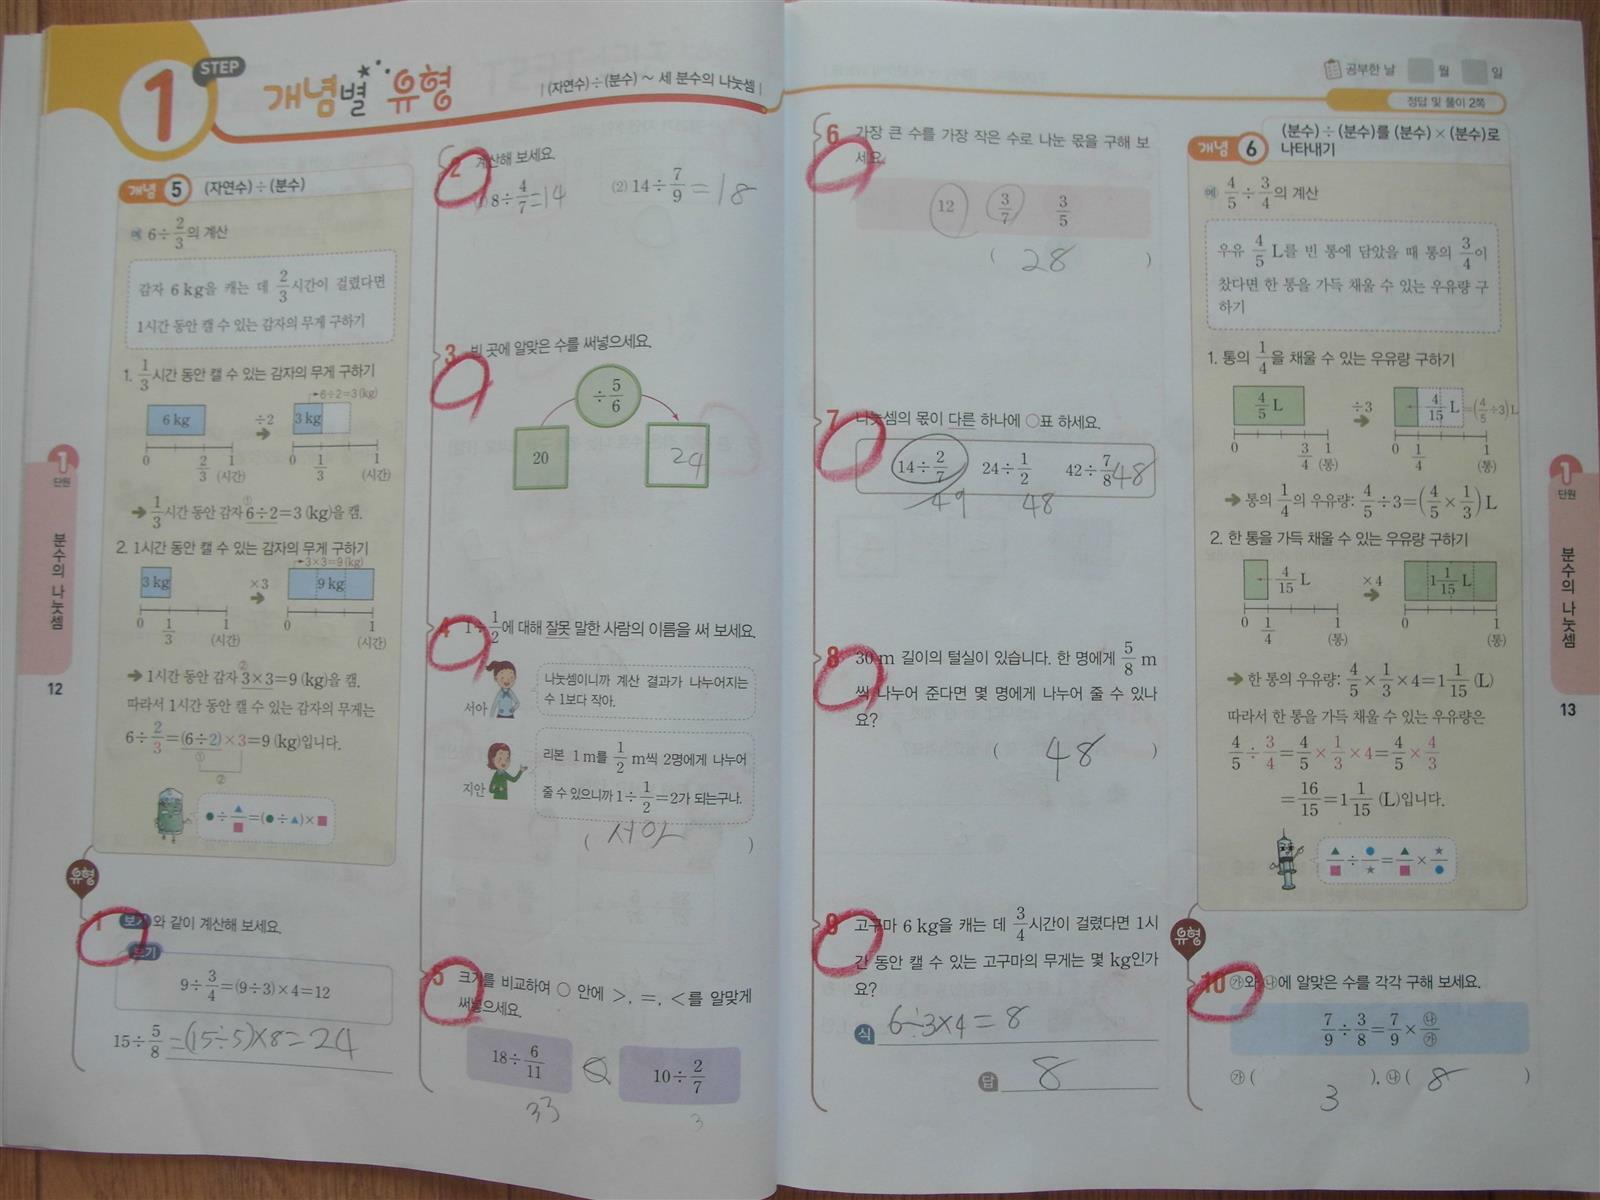 1 STEP
개념별 유형
| (자연수)÷(분수) ~ 세 분수의 나눗셈 |
개념 5 (자연수)÷(분수)
예 6÷2/3의 계산
감자 6 kg을 캐는 데 2/3시간이 걸렸다면
1시간 동안 캘 수 있는 감자의 무게 구하기
1. 1/3시간 동안 캘 수 있는 감자의 무게 구하기
6÷2=3 (kg)
6 kg ÷2 3 kg
0 2/3 1 (시간) 0 1/3 1 (시간)
➔ 1/3시간 동안 감자 ①6÷2=3 (kg)을 캠.
2. 1시간 동안 캘 수 있는 감자의 무게 구하기
3×3=9 (kg)
3 kg ×3 9 kg
0 1/3 1 (시간) 0 1 (시간)
➔ 1시간 동안 감자 ②3×3=9 (kg)을 캠.
따라서 1시간 동안 캘 수 있는 감자의 무게는
6÷2/3=(6÷2)×3=9 (kg)입니다.
①
②
●÷▲/■=(●÷▲)×■
유형
1 보기와 같이 계산해 보세요.
보기
9÷3/4=(9÷3)×4=12
15÷5/8 =(15÷5)×8=24
1 단원
분수의 나눗셈
12
2 계산해 보세요.
8÷4/7=14 (2) 14÷7/9=18
3 빈 곳에 알맞은 수를 써넣으세요.
÷5/6
20 24
4 1÷1/2에 대해 잘못 말한 사람의 이름을 써 보세요.
서아
나눗셈이니까 계산 결과가 나누어지는
수 1보다 작아.
지안
리본 1 m를 1/2 m씩 2명에게 나누어
줄 수 있으니까 1÷1/2=2가 되는구나.
( 서아 )
5 크기를 비교하여 ○ 안에 >, =, <를 알맞게
써넣으세요.
18÷6/11 < 10÷2/7
33 3
공부한 날 월 일
정답 및 풀이 2쪽
6 가장 큰 수를 가장 작은 수로 나눈 몫을 구해 보
세요.
12 3/7 3/5
( 28 )
7 나눗셈의 몫이 다른 하나에 ○표 하세요.
14÷2/7 24÷1/2 42÷7/8 48
49 48
8 30 m 길이의 털실이 있습니다. 한 명에게 5/8 m
씩 나누어 준다면 몇 명에게 나누어 줄 수 있나
요?
( 48 )
9 고구마 6 kg을 캐는 데 3/4시간이 걸렸다면 1시
간 동안 캘 수 있는 고구마의 무게는 몇 kg인가
요?
식 6÷3×4=8
답 8
개념 6 (분수)÷(분수)를 (분수)×(분수)로
나타내기
예 4/5÷3/4의 계산
우유 4/5 L를 빈 통에 담았을 때 통의 3/4이
찼다면 한 통을 가득 채울 수 있는 우유량 구
하기
1. 통의 1/4을 채울 수 있는 우유량 구하기
4/5 L ÷3 4/15 L =(4/5÷3) L
0 3/4 1 (통) 0 1/4 1 (통)
➔ 통의 1/4의 우유량: 4/5÷3=(4/5×1/3) L
2. 한 통을 가득 채울 수 있는 우유량 구하기
4/15 L ×4 1 1/15 L
0 1/4 1 (통) 0 1 (통)
➔ 한 통의 우유량: 4/5×1/3×4=1 1/15 (L)
따라서 한 통을 가득 채울 수 있는 우유량은
4/5÷3/4=4/5×1/3×4=4/5×4/3
=16/15=1 1/15 (L)입니다.
▲/■÷●/★=▲/■×★/●
유형
10 ㉮와 ㉯에 알맞은 수를 각각 구해 보세요.
7/9÷3/8=7/9×㉯/㉮
㉮ ( 3 ), ㉯ ( 8 )
1 단원
분수의 나눗셈
13